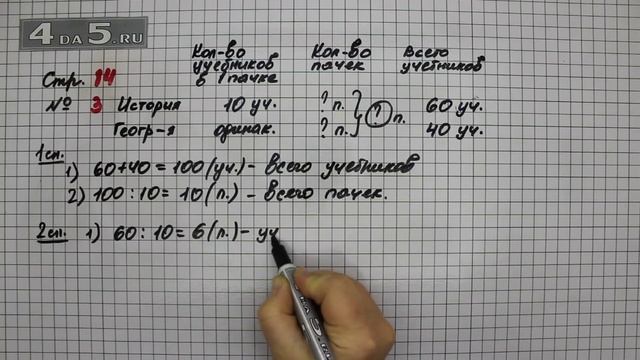 4 DA 5.RU
Кол-во учебников в 1 пачке
Кол-во пачек
Всего учебников
Стр. 14
№ 3 История 10 уч. ? п. ? п. 60 уч.
Геогр-я одинак. ? п. 40 уч.
1 сп.
1) 60+40 = 100 (уч.) - всего учебников
2) 100 : 10 = 10 (п.) - всего пачек.
2 сп. 1) 60 : 10 = 6 (п.) - уч